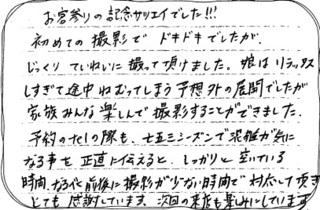 お宮参りの記念サツエイでした!!!
初めての撮影でドキドキでしたが、
じっくりていねいに撮って頂けました。娘はリラックス
しすぎて途中ねむってしまう予想外の展開でしたが
家族みんな楽しんで撮影することができました。
予約のtelの際も、七五三シーズンで混雑が気に
なる事を正直に伝えると、しっかりと空いている
時間、なるべく前後に撮影が少ない時間で対応して頂き
とても感謝しています。次回の来店も楽しみにしています